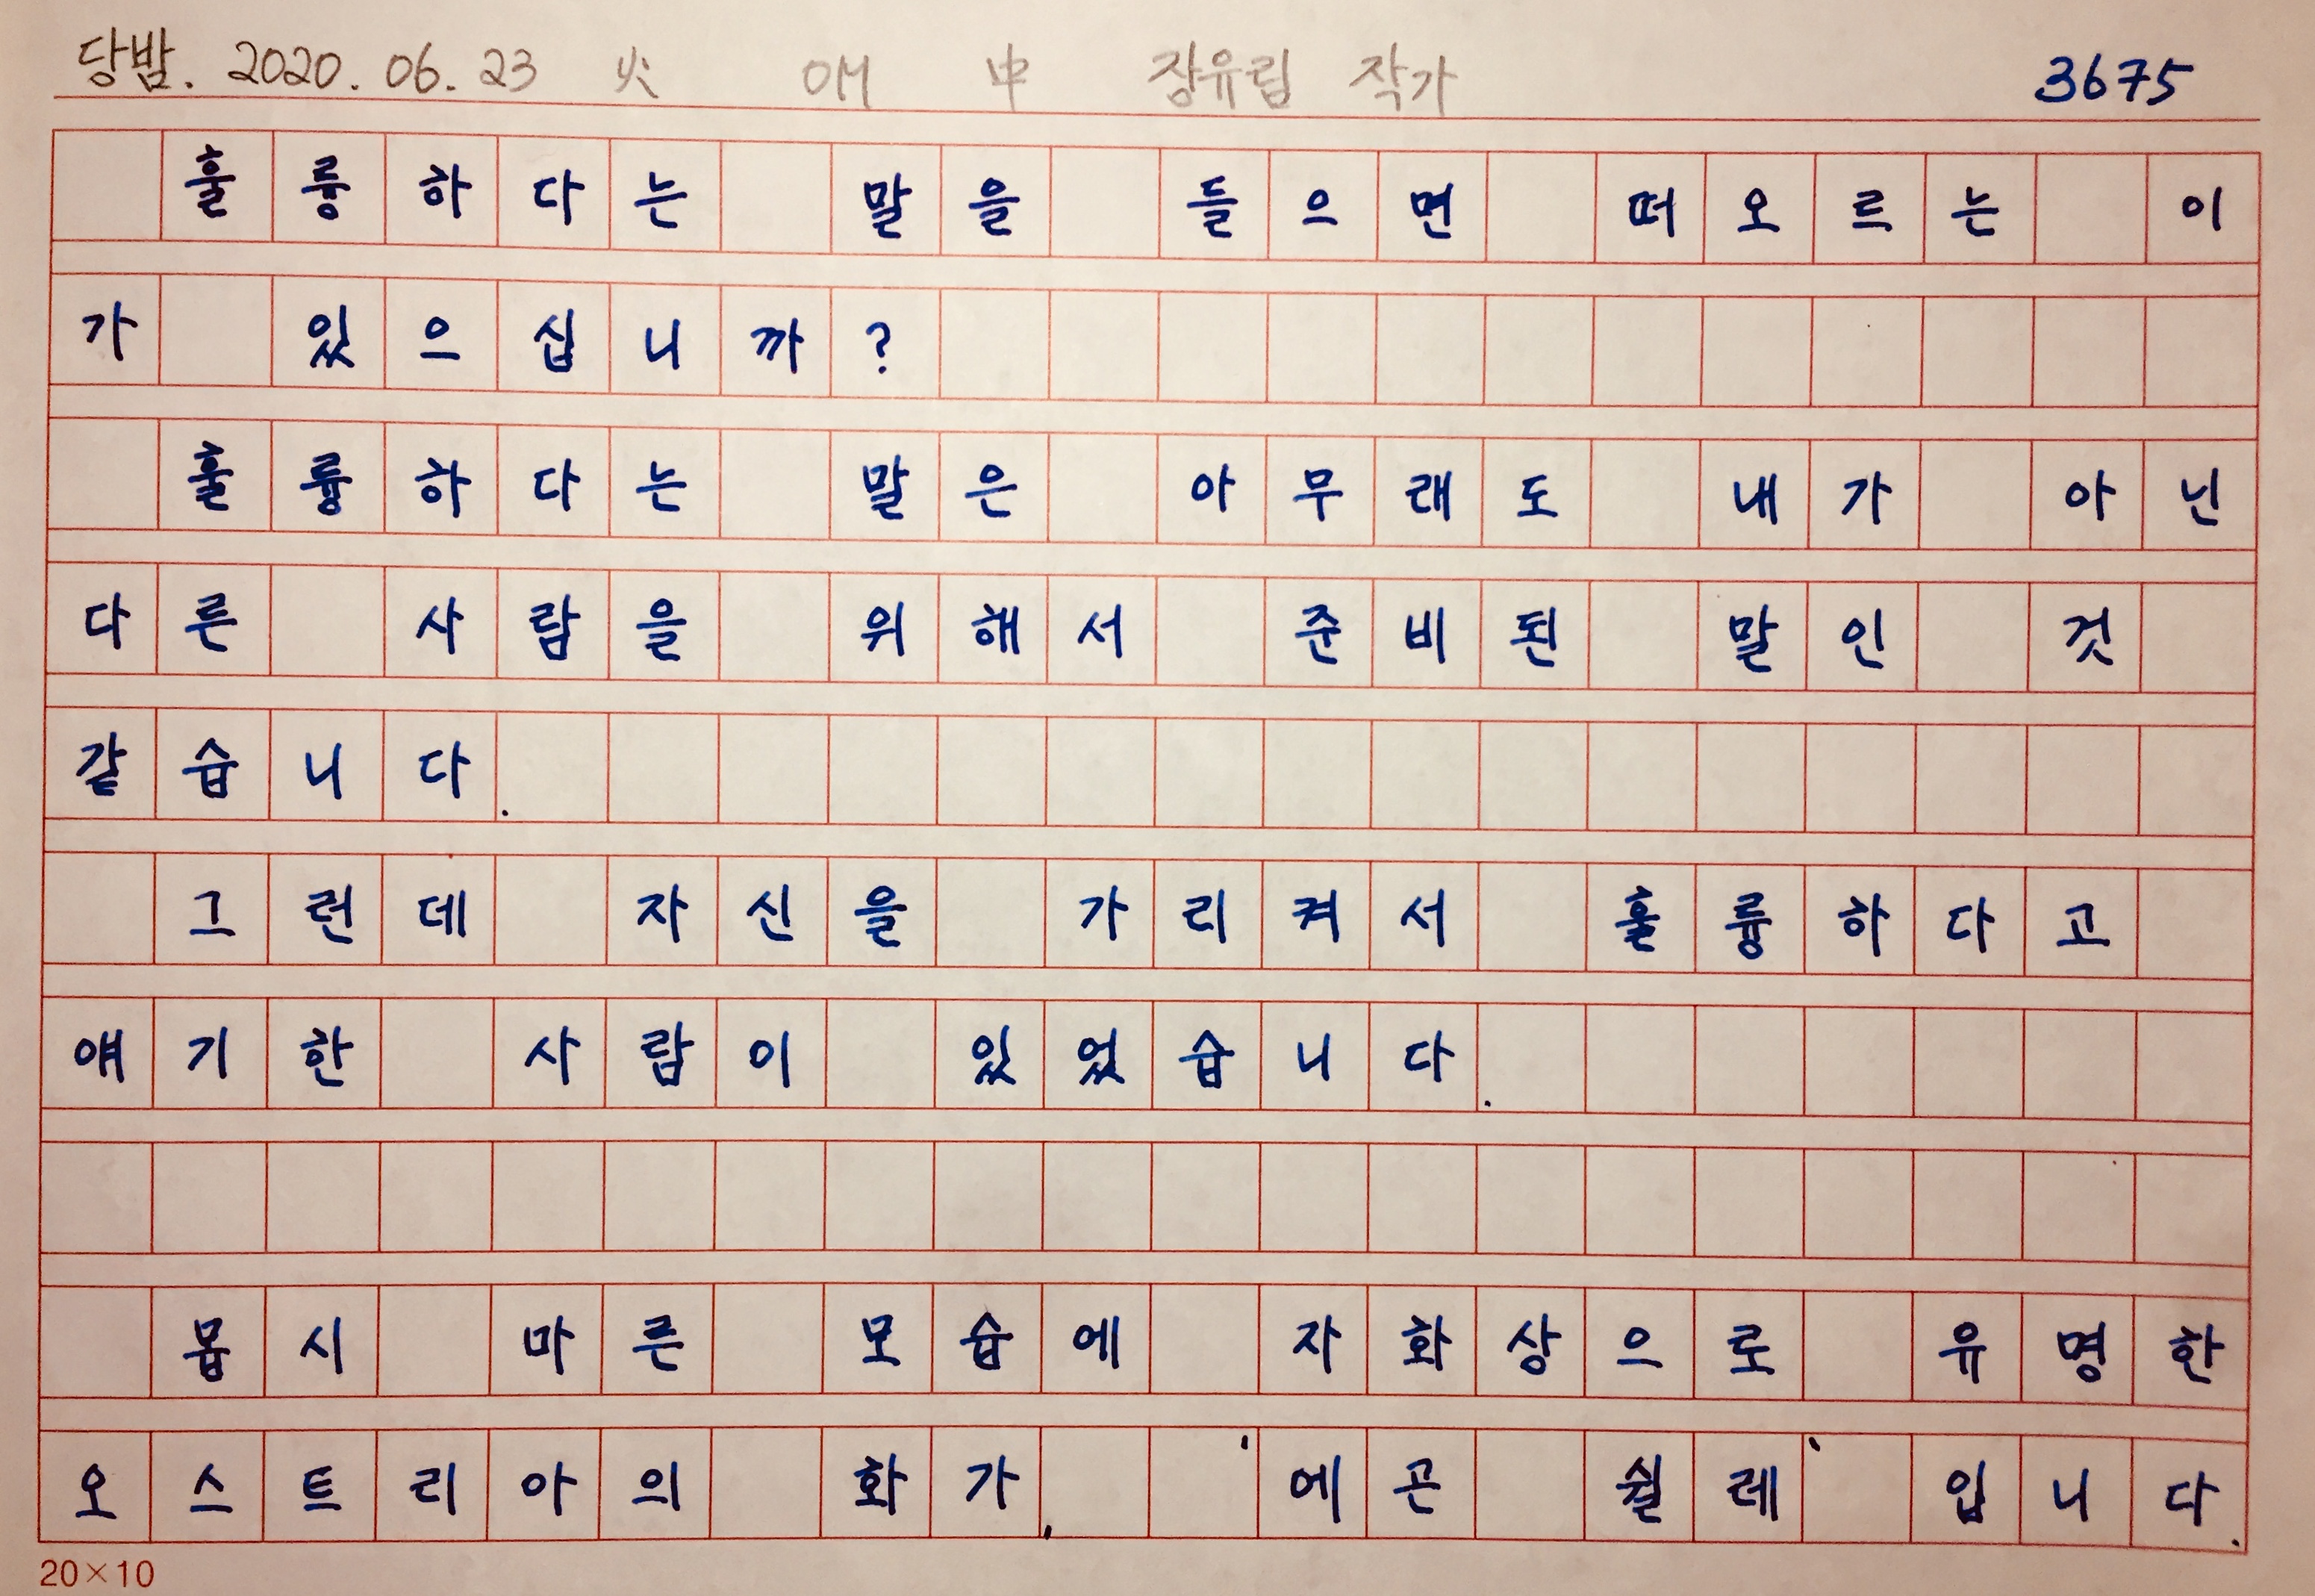 당밤. 2020. 06. 23 火 ㅇㅐ 中 장유림 작가 3675
훌륭하다는 말을 들으면 떠오르는 이
가 있으십니까?
훌륭하다는 말은 아무래도 내가 아닌
다른 사람을 위해서 준비된 말인 것
같습니다.
그런데 자신을 가리켜서 훌륭하다고
얘기한 사람이 있었습니다.
몹시 마른 모습에 자화상으로 유명한
오스트리아의 화가, '에곤 쉴레' 입니다.
20×10